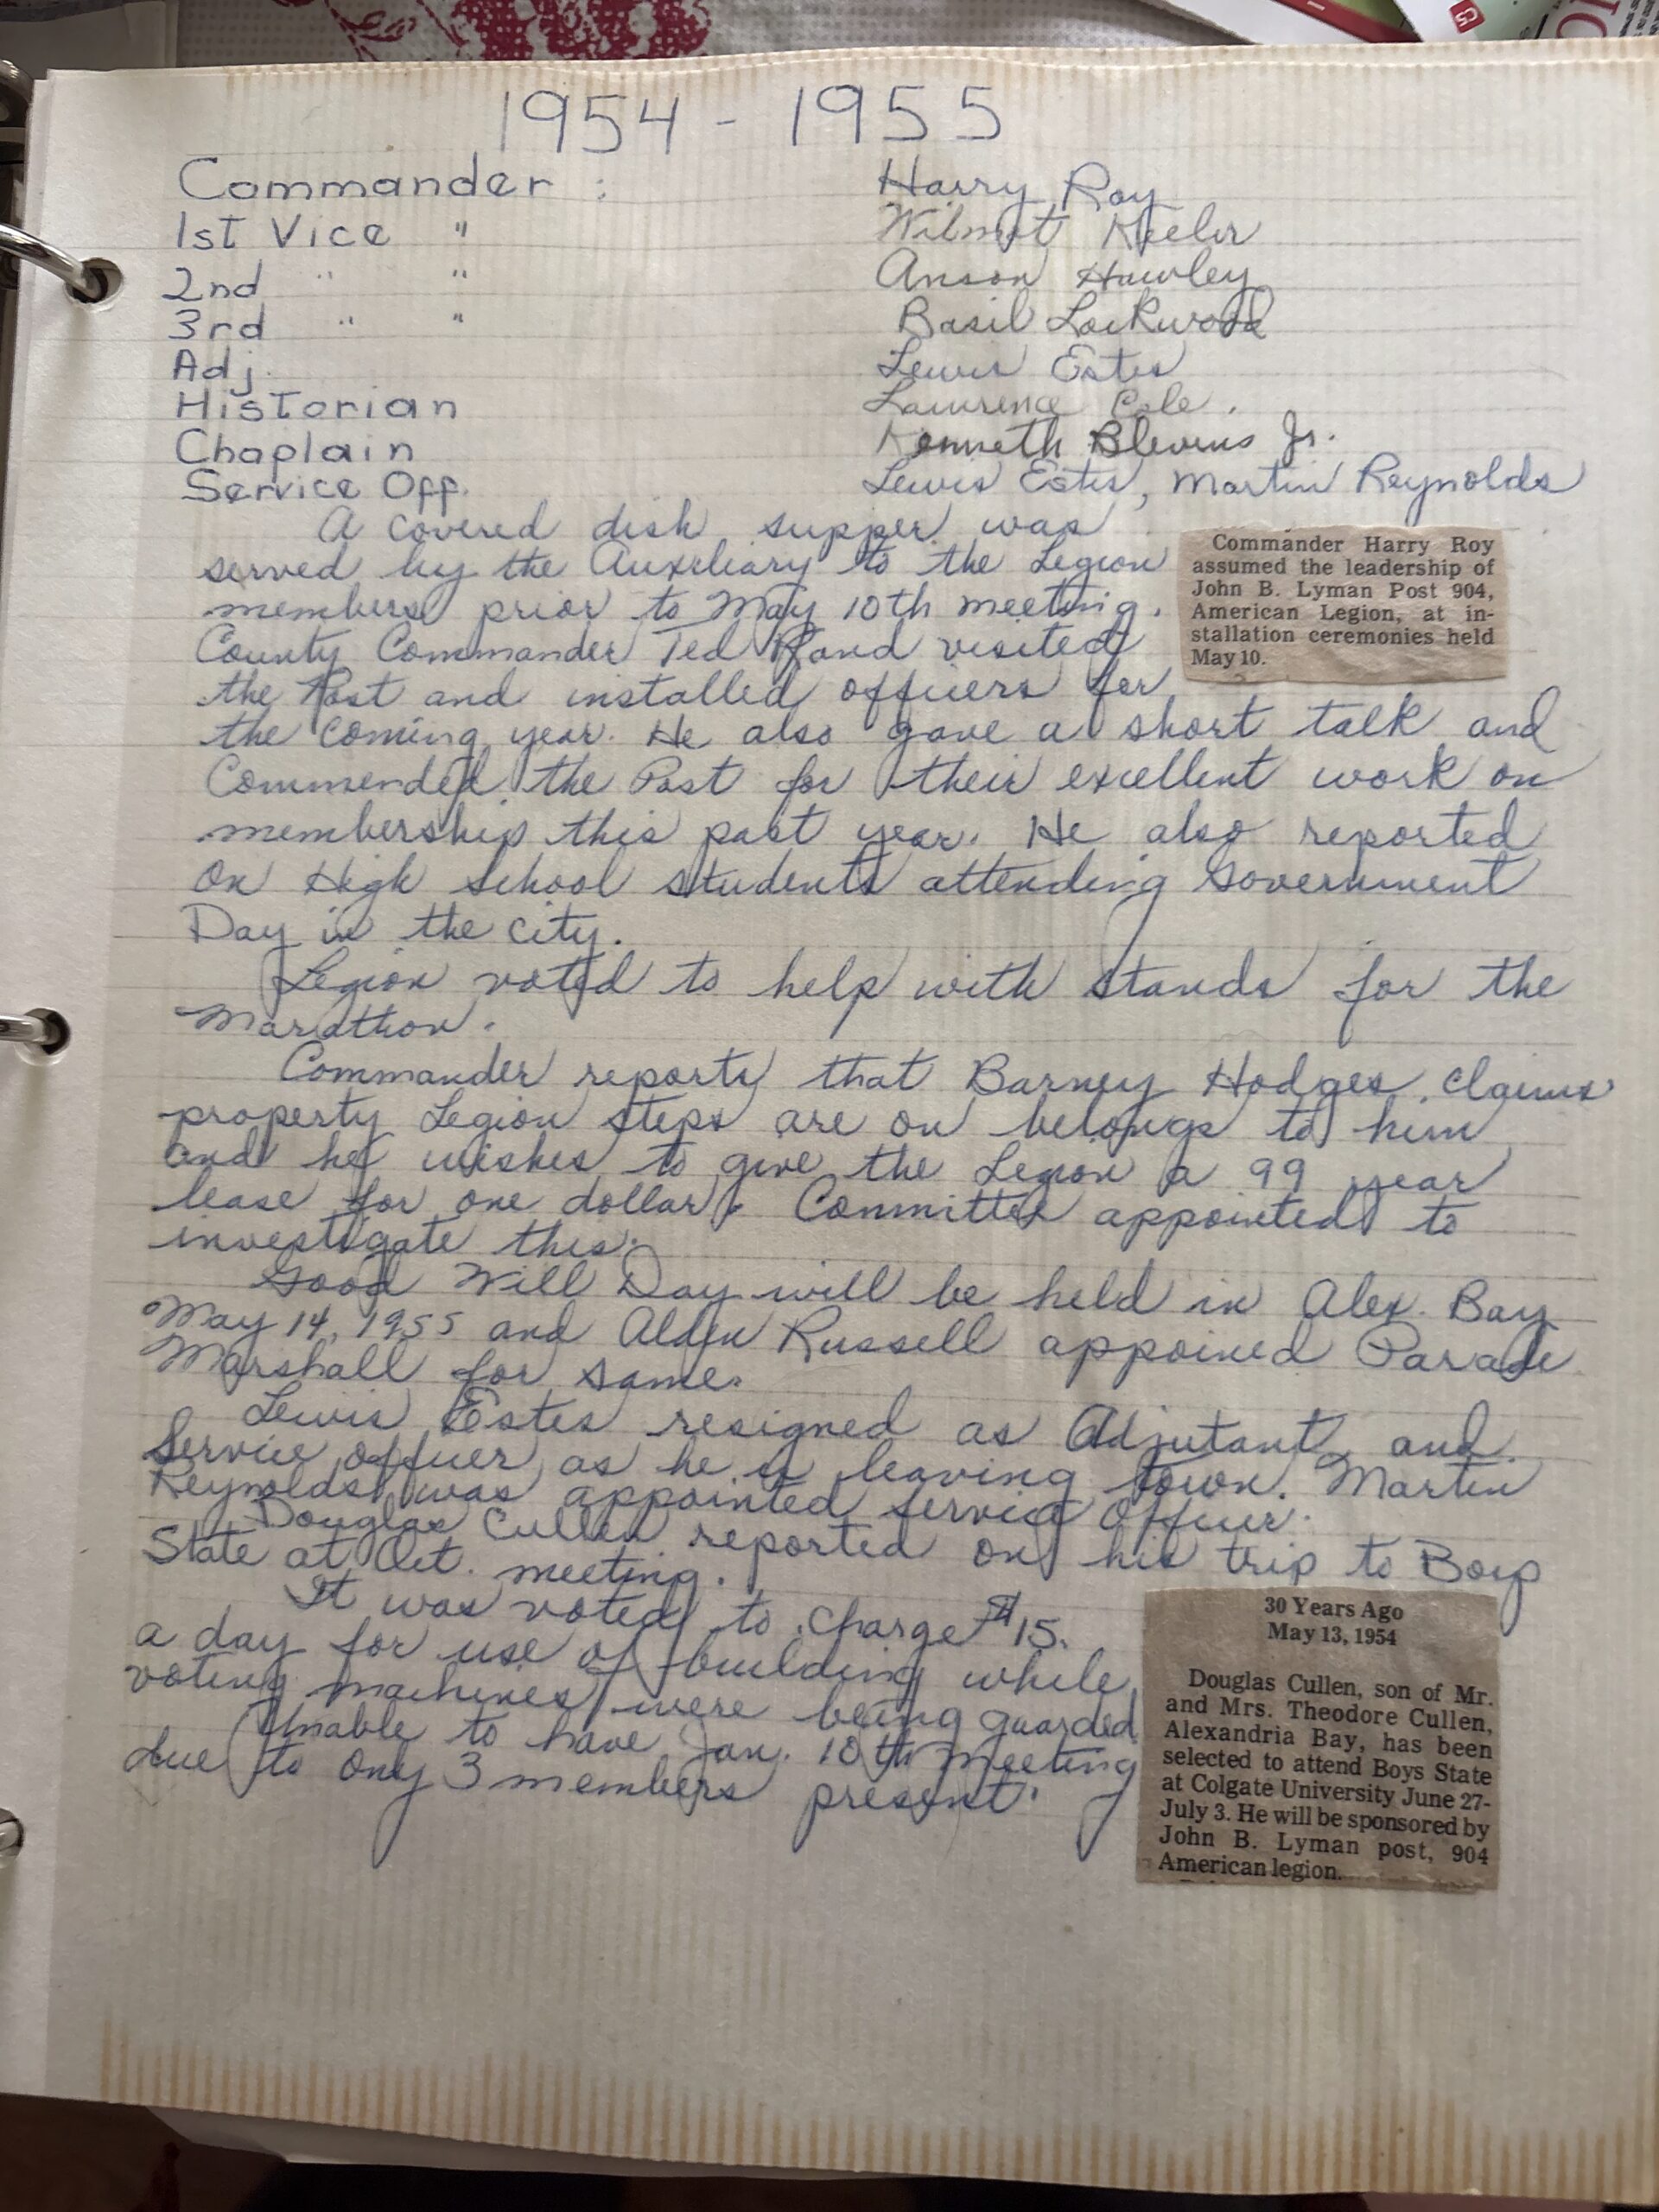 1954 - 1955
Commander : Harry Roy
1st Vice " Wilmot Keeler
2nd " " Anson Hawley
3rd " " Basil Lockwood
Adj. Lewis Estes
Historian Lawrence Cole.
Chaplain Kenneth Blevins Jr.
Service Off. Lewis Estes, Martin Reynolds
A covered dish supper was
served by the Auxiliary to the Legion
members prior to May 10th meeting.
County Commander Ted Rand visited
the Post and installed officers for
the coming year. He also gave a short talk and
Commended the Post for their excellent work on
membership this past year. He also reported
on High School students attending Government
Day in the city.
Commander Harry Roy
assumed the leadership of
John B. Lyman Post 904,
American Legion, at in-
stallation ceremonies held
May 10.
Legion voted to help with stands for the
Marathon.
Commander reports that Barney Hodges claims
property Legion steps are on belongs to him
and he wishes to give the Legion a 99 year
lease for one dollar. Committee appointed to
investigate this.
Good Will Day will be held in Alex. Bay
May 14, 1955 and Alden Russell appoined Parade
Marshall for same.
Lewis Estes resigned as Adjutant and
Service officer as he is leaving town. Martin
Reynolds was appointed Service Officer.
Douglas Cullen reported on his trip to Boys
State at Oct. meeting.
It was voted to charge $15.
a day for use of building while
voting machines were being guarded
Unable to have Jan. 10th meeting
due to only 3 members present.
30 Years Ago
May 13, 1954
Douglas Cullen, son of Mr.
and Mrs. Theodore Cullen,
Alexandria Bay, has been
selected to attend Boys State
at Colgate University June 27-
July 3. He will be sponsored by
John B. Lyman post, 904
American legion.